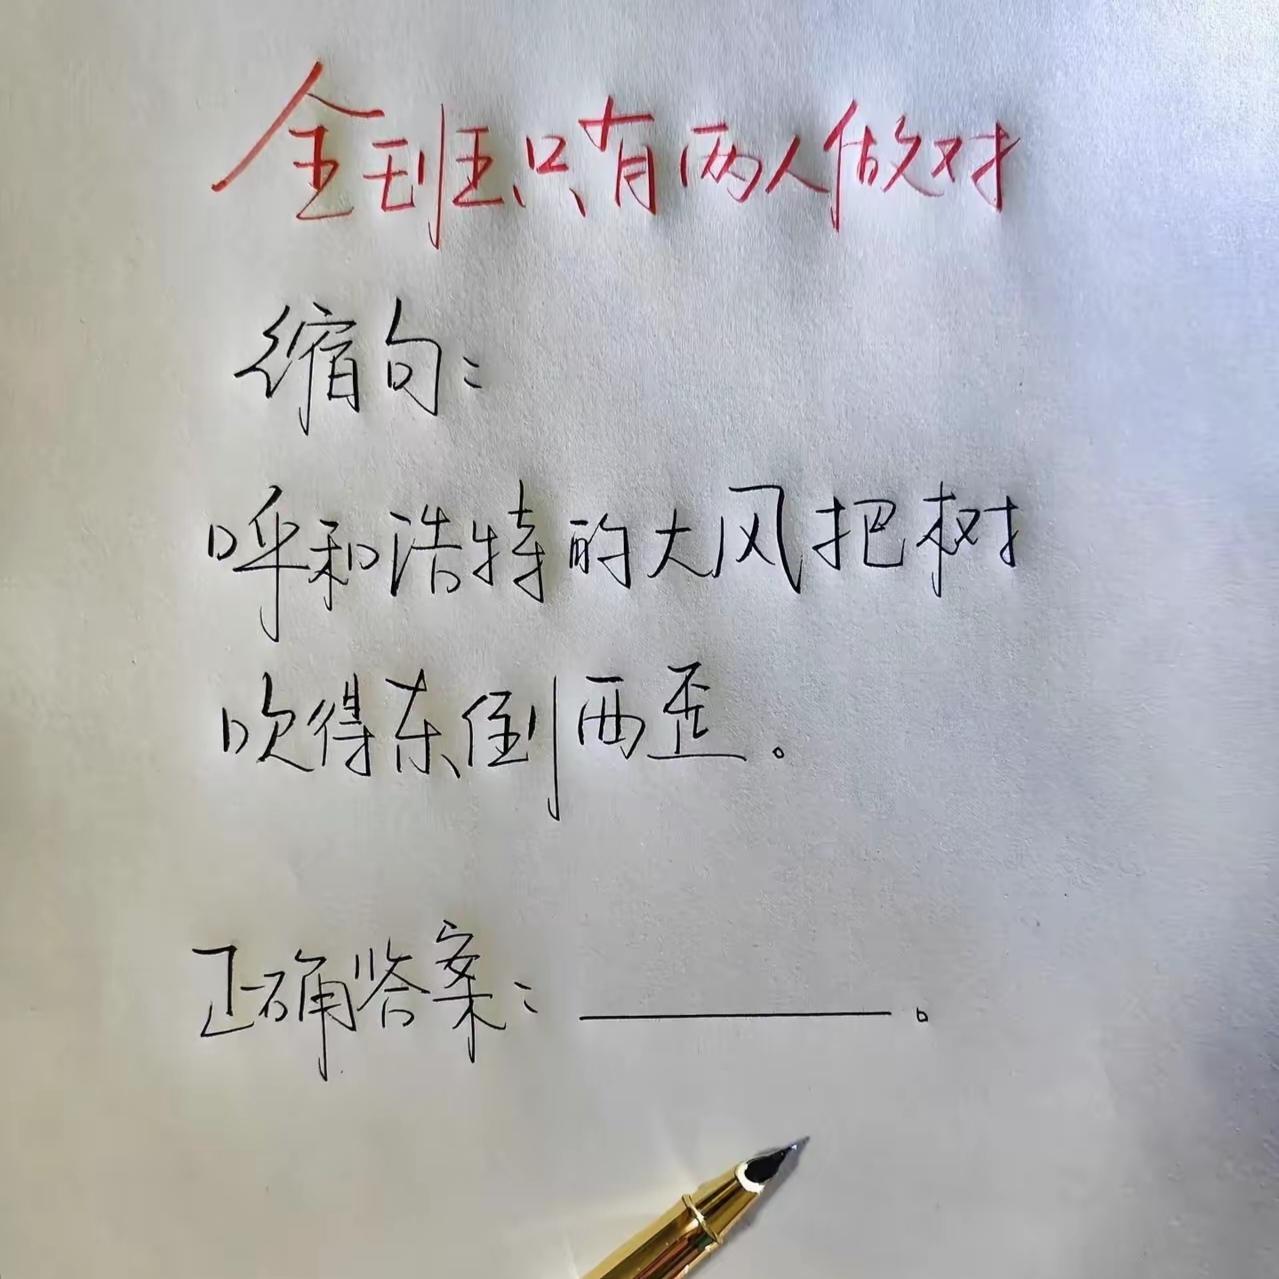 全班只有两人做对
缩句：
呼和浩特的大风把树
吹得东倒西歪。
正确答案：＿＿＿＿＿＿。